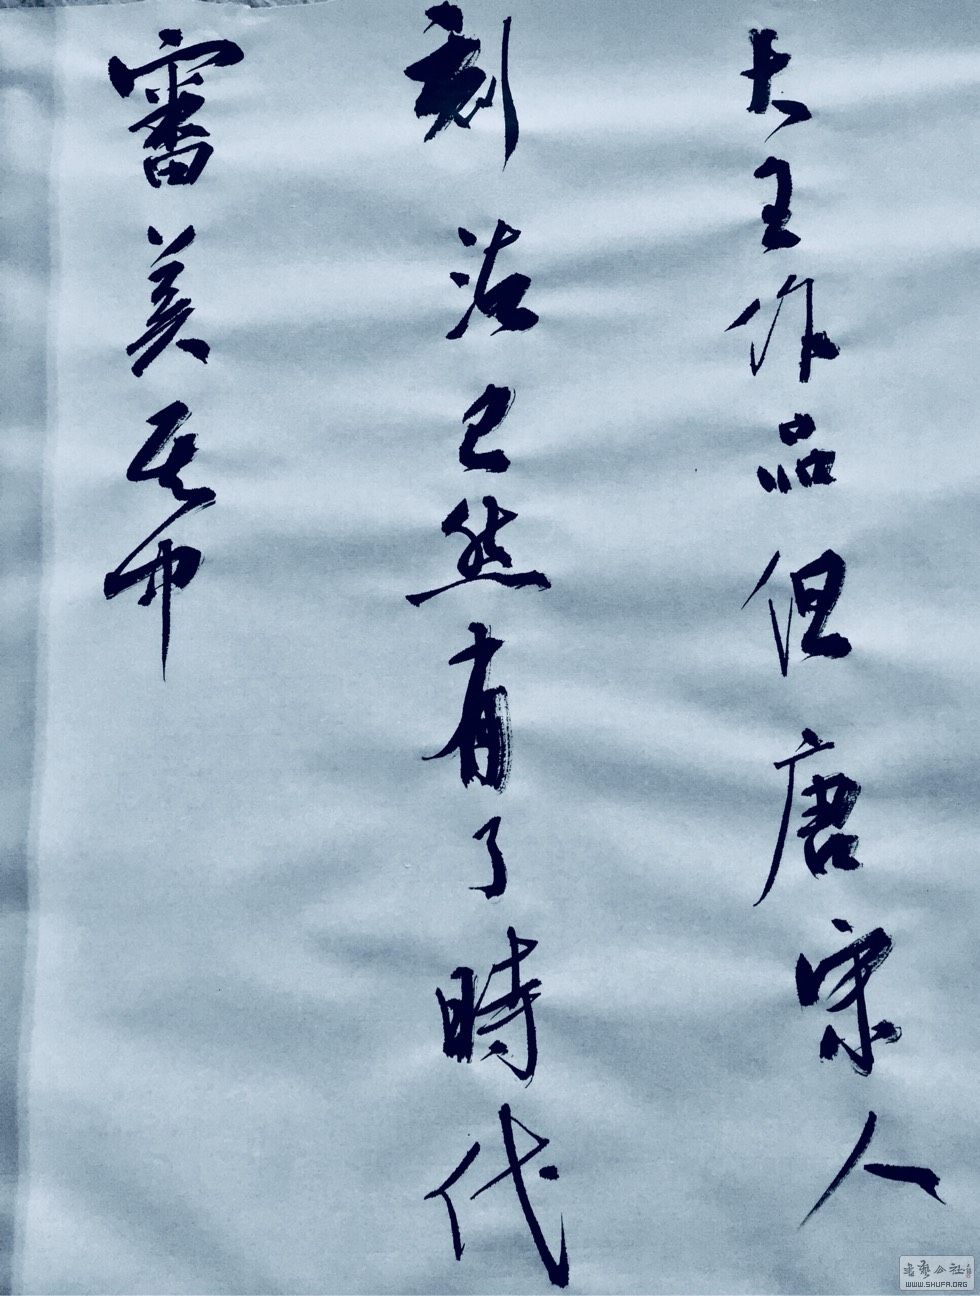 大王作品但唐宋人
刻法已然有了時代
審美其中
WWW.SHUFA.ORG